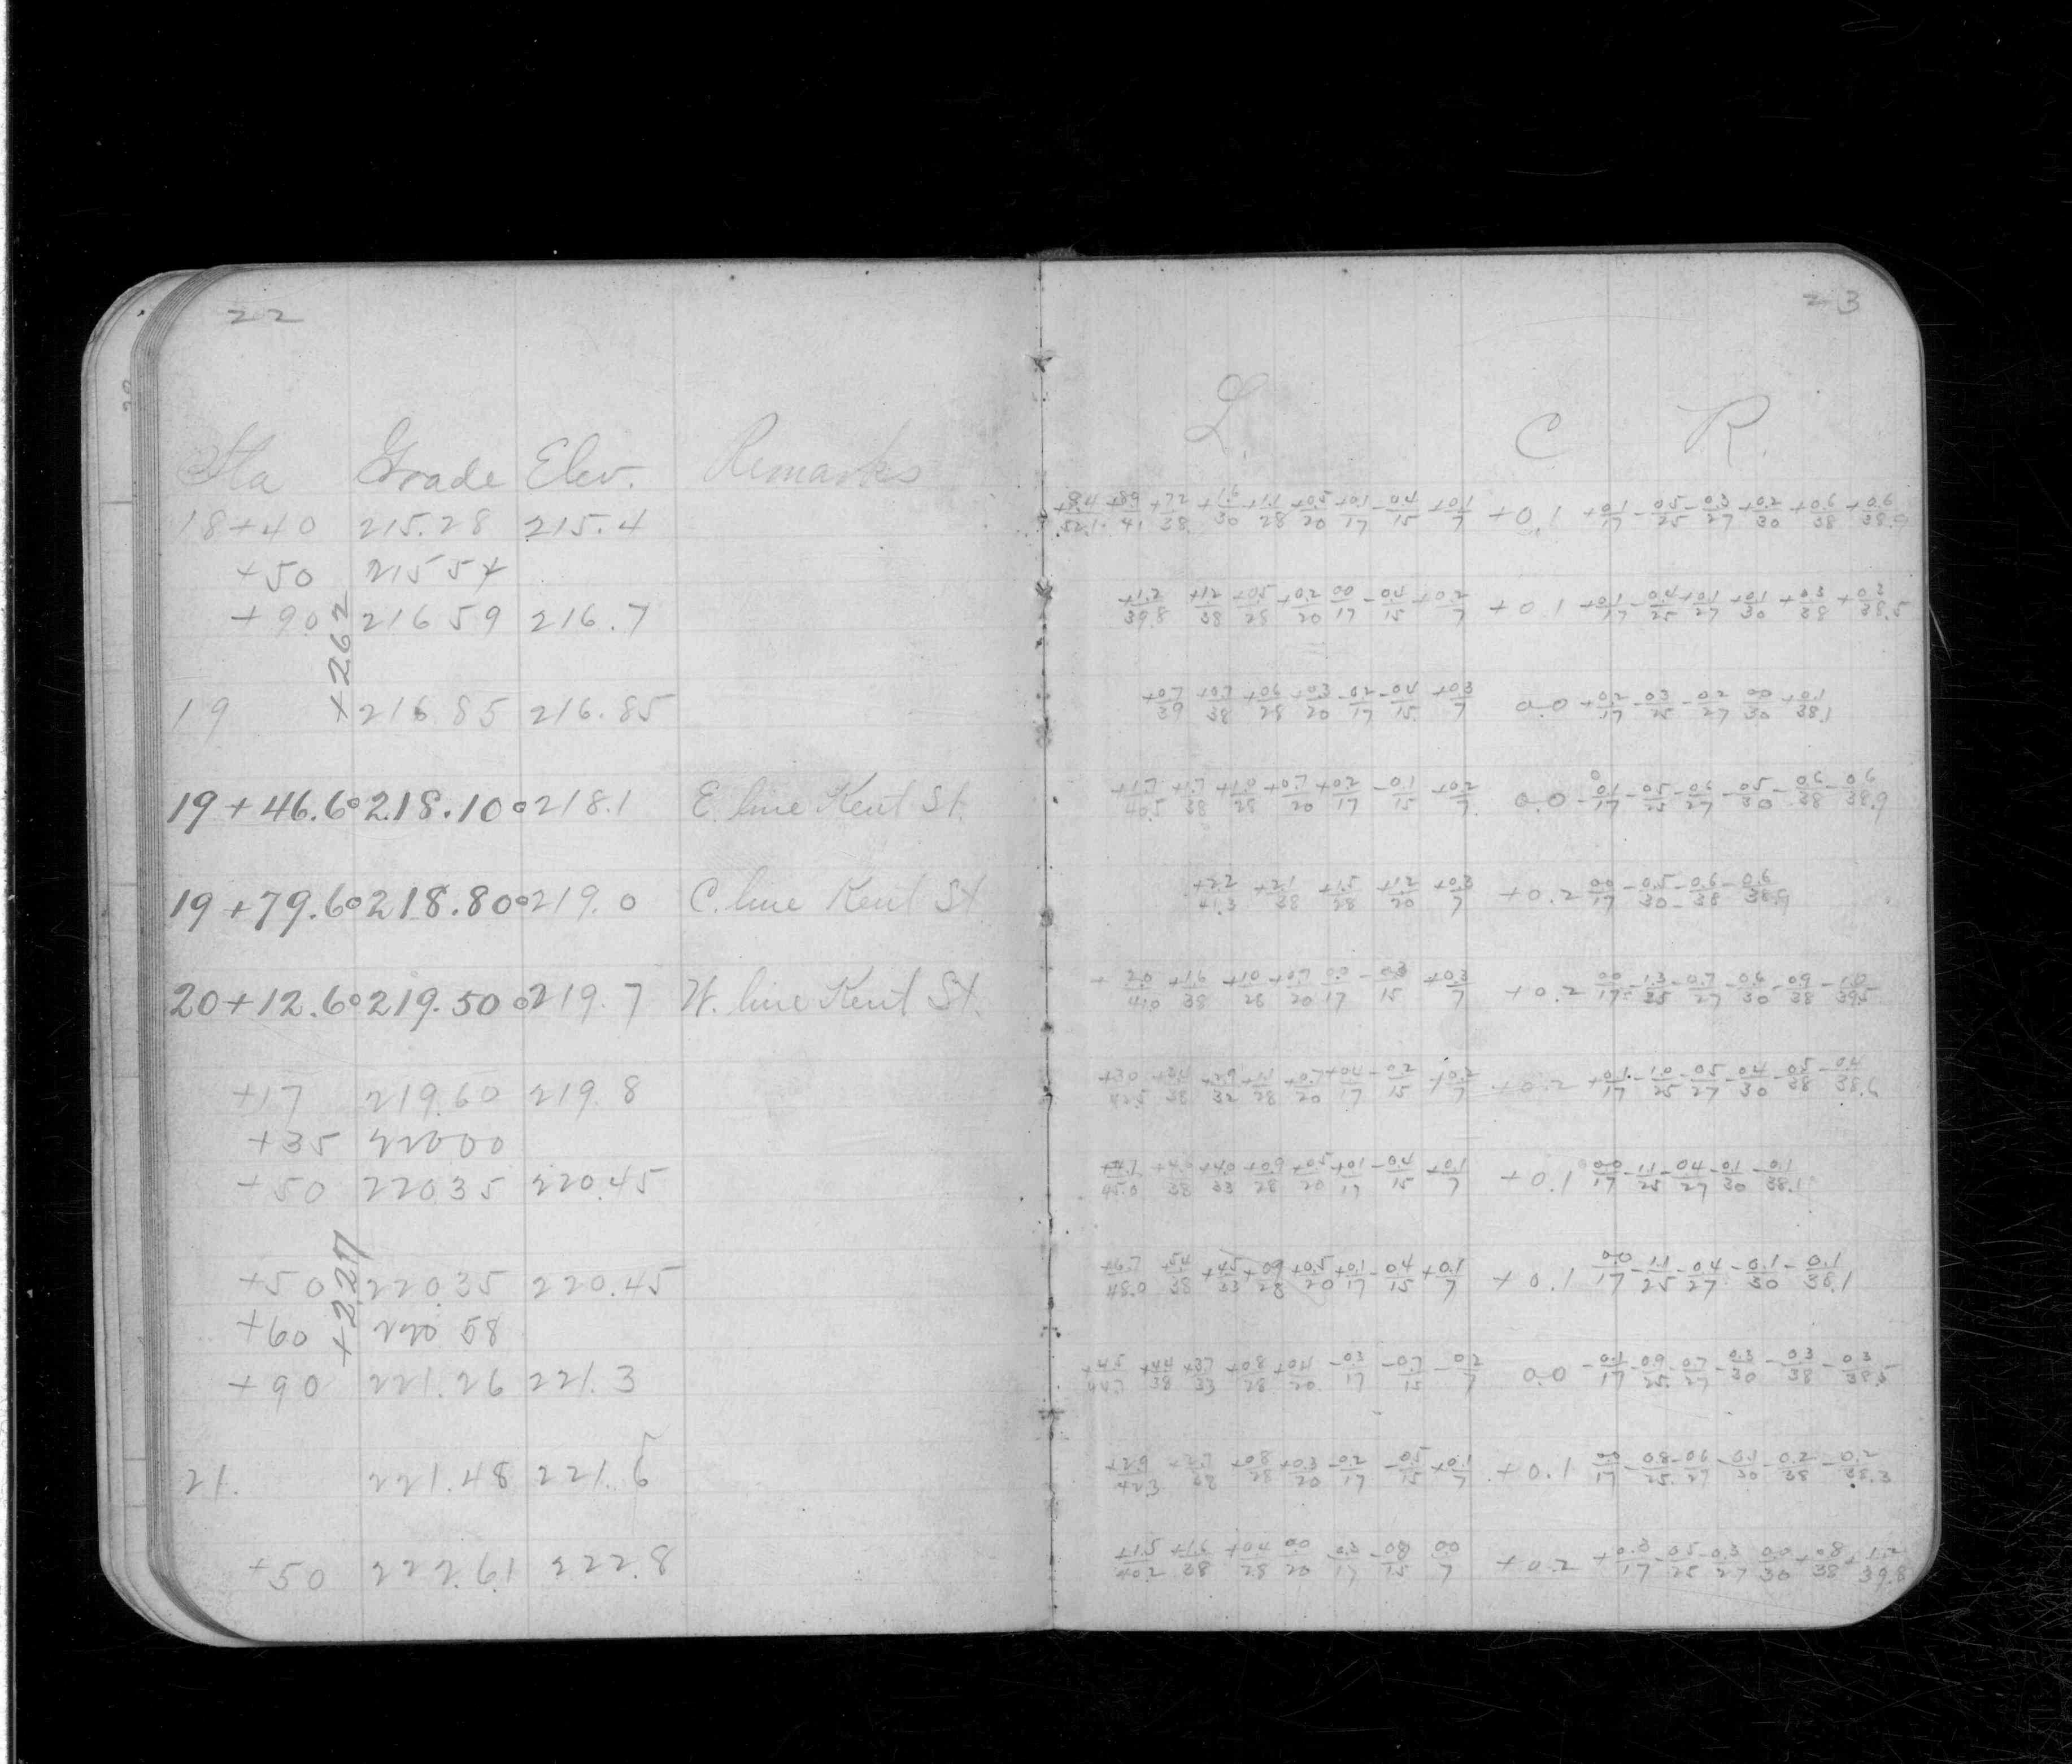 22
Sta Grade Elev. Remarks
18+40 215.28 215.4
+50 215 54
+90 216 59 216.7
+262
19 216.85 216.85
19+46.60 218.10 218.1 E. line Kent St.
19+79.60 218.80 219.0 C. line Kent St
20+12.60 219.50 219.7 W. line Kent St.
+17 219.60 219.8
+35 22000
+50 220.35 220.45
+2.27
+50 22035 220.45
+60 220 58
+90 221.26 221.3
21. 221.48 221.6
+50 222.61 222.8
23
L. C R.
+8.4/52.1 +8.9/41 +7.2/38 +1.6/30 +1.1/28 +0.5/20 +0.1/17 -0.4/15 +0.1/7 +0.1 +0.1/17 -0.5/25 -0.3/27 +0.2/30 +0.6/38 +0.6/38.9
+1.2/39.8 +1.2/38 +0.5/28 +0.2/20 00/17 -0.4/15 +0.2/7 +0.1 +0.1/17 -0.4/25 +0.1/27 +0.1/30 +0.3/38 +0.3/38.5
+0.7/39 +0.7/38 +0.6/28 +0.3/20 -0.2/17 -0.4/15 +0.3/7 0.0 +0.2/17 -0.3/25 -0.2/27 00/30 +0.1/38.1
+1.7/40.5 +1.7/38 +1.0/28 +0.7/20 +0.2/17 -0.1/15 +0.2/7 0.0 -0.1/17 -0.5/25 -0.6/27 -0.5/30 -0.6/38 -0.6/38.9
+2.2/41.3 +2.1/38 +1.5/28 +1.2/20 +0.3/7 +0.2 00/17 -0.5/30 -0.6/38 -0.6/38.9
+2.0/41.0 +1.6/38 +1.0/28 +0.7/20 0.0/17 -0.3/15 +0.3/7 +0.2 00/17 -1.3/25 -0.7/27 -0.6/30 -0.9/38 -1.0/39.5
+3.0/42.5 /38 +2.9/32 +1.1/28 +0.7/20 +0.4/17 -0.2/15 +0.2/7 +0.2 +0.1/17 -1.0/25 -0.5/27 -0.4/30 -0.5/38 -0.4/38.6
+4.7/45.0 /38 +4.0/33 +0.9/28 +0.5/20 +0.1/17 -0.4/15 +0.1/7 +0.1 00/17 -1.1/25 -0.4/27 -0.1/30 -0.1/38.1
+6.7/48.0 +5.4/38 +4.5/33 +0.9/28 +0.5/20 +0.1/17 -0.4/15 +0.1/7 +0.1 0.0/17 -1.1/25 -0.4/27 -0.1/30 -0.1/38.1
+4.5/44.7 +4.4/38 +3.7/33 +0.8/28 +0.4/20 -0.3/17 -0.7/15 -0.2/7 0.0 -0.1/17 -0.9/25 -0.7/27 -0.3/30 -0.3/38 -0.3/38.5
+2.9/42.3 +2.7/38 +0.8/28 +0.3/20 -0.2/17 -0.5/15 +0.1/7 +0.1 00/17 -0.8/25 -0.6/27 /30 -0.2/38 -0.2/38.3
+1.5/40.2 +1.6/38 +0.4/28 0.0/20 /17 -0.8/15 0.0/7 +0.2 +0.3/17 -0.5/25 -0.3/27 0.0/30 +0.8/38 +1.2/39.8